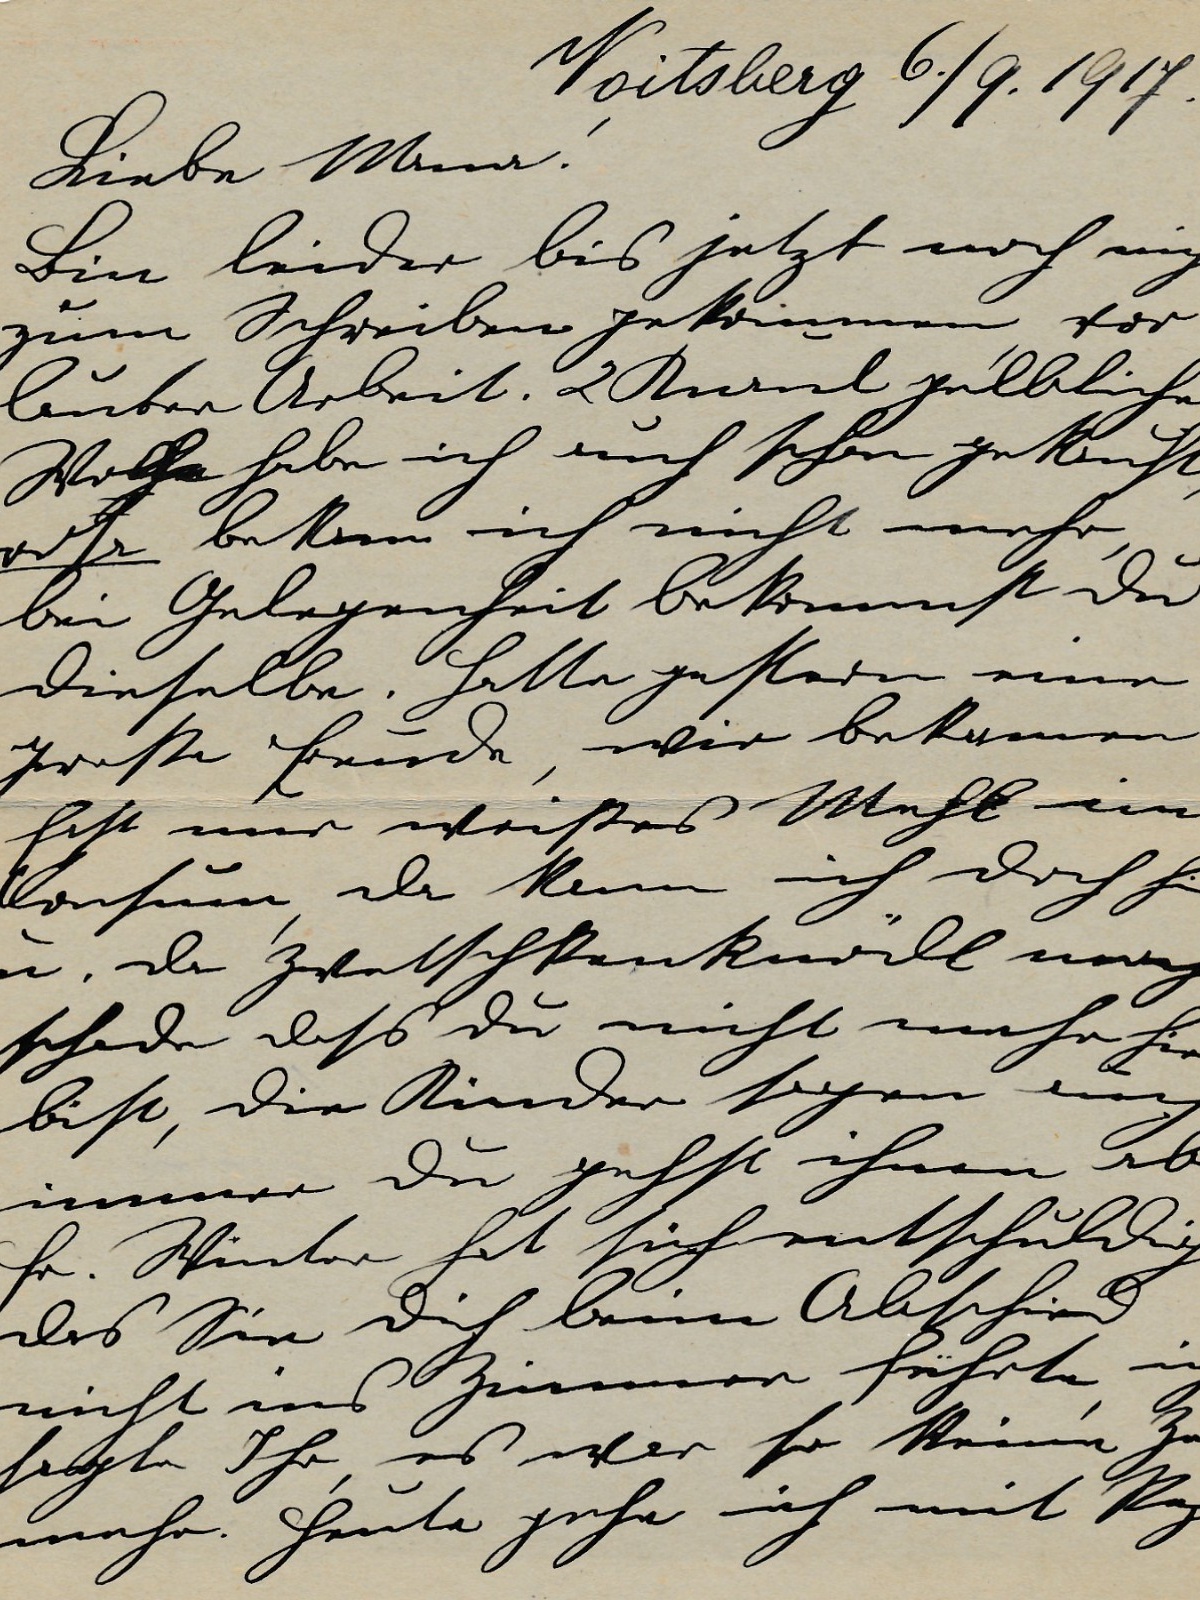 Voitsberg 6./9. 1917.
Liebe Mama!
Bin leider bis jetzt noch nich
zum Schreiben gekommen, vor
lauter Arbeit. 2 gelbliche
Wolle habe ich auch schon gekauft,
bekam ich nicht mehr,
bei Gelegenheit bekommst du
dieselbe. Hatte gestern eine
grosse Freude, wir bekamen
fast nur weisses Mehl im
Consum, da kann ich doch
u. da Zwetschkenknödl
schade dass du nicht mehr hier
bist, die Kinder sagen auch
immer du gehst ihnen ab
Fr. Winter hat sich entschuldig
das Sie dich beim Abschied
nicht ins Zimmer führte, ich
sagte Ihr, es war so keine Ze
mehr. Heute gehe ich mit